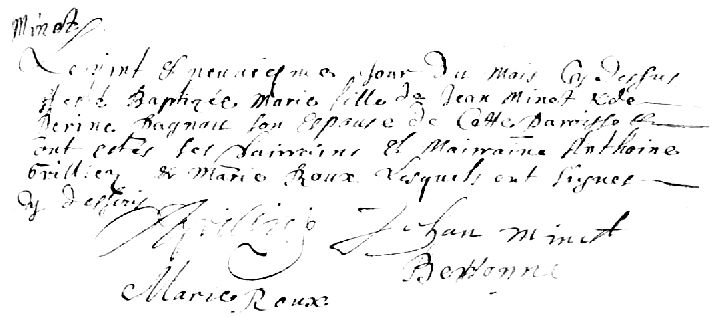 Minot
Le vint et neuviesme Jour du mois Cy dessus
a esté Baptizée Marie fille de Jean Minot & de
Perine son Espouse de Cette Parroisse
ont estés ses Parrains et Mairainne Anthoine
& Marie Roux Lesquels ont signes
Cy dessus
Jehan Minot
Marie Roux